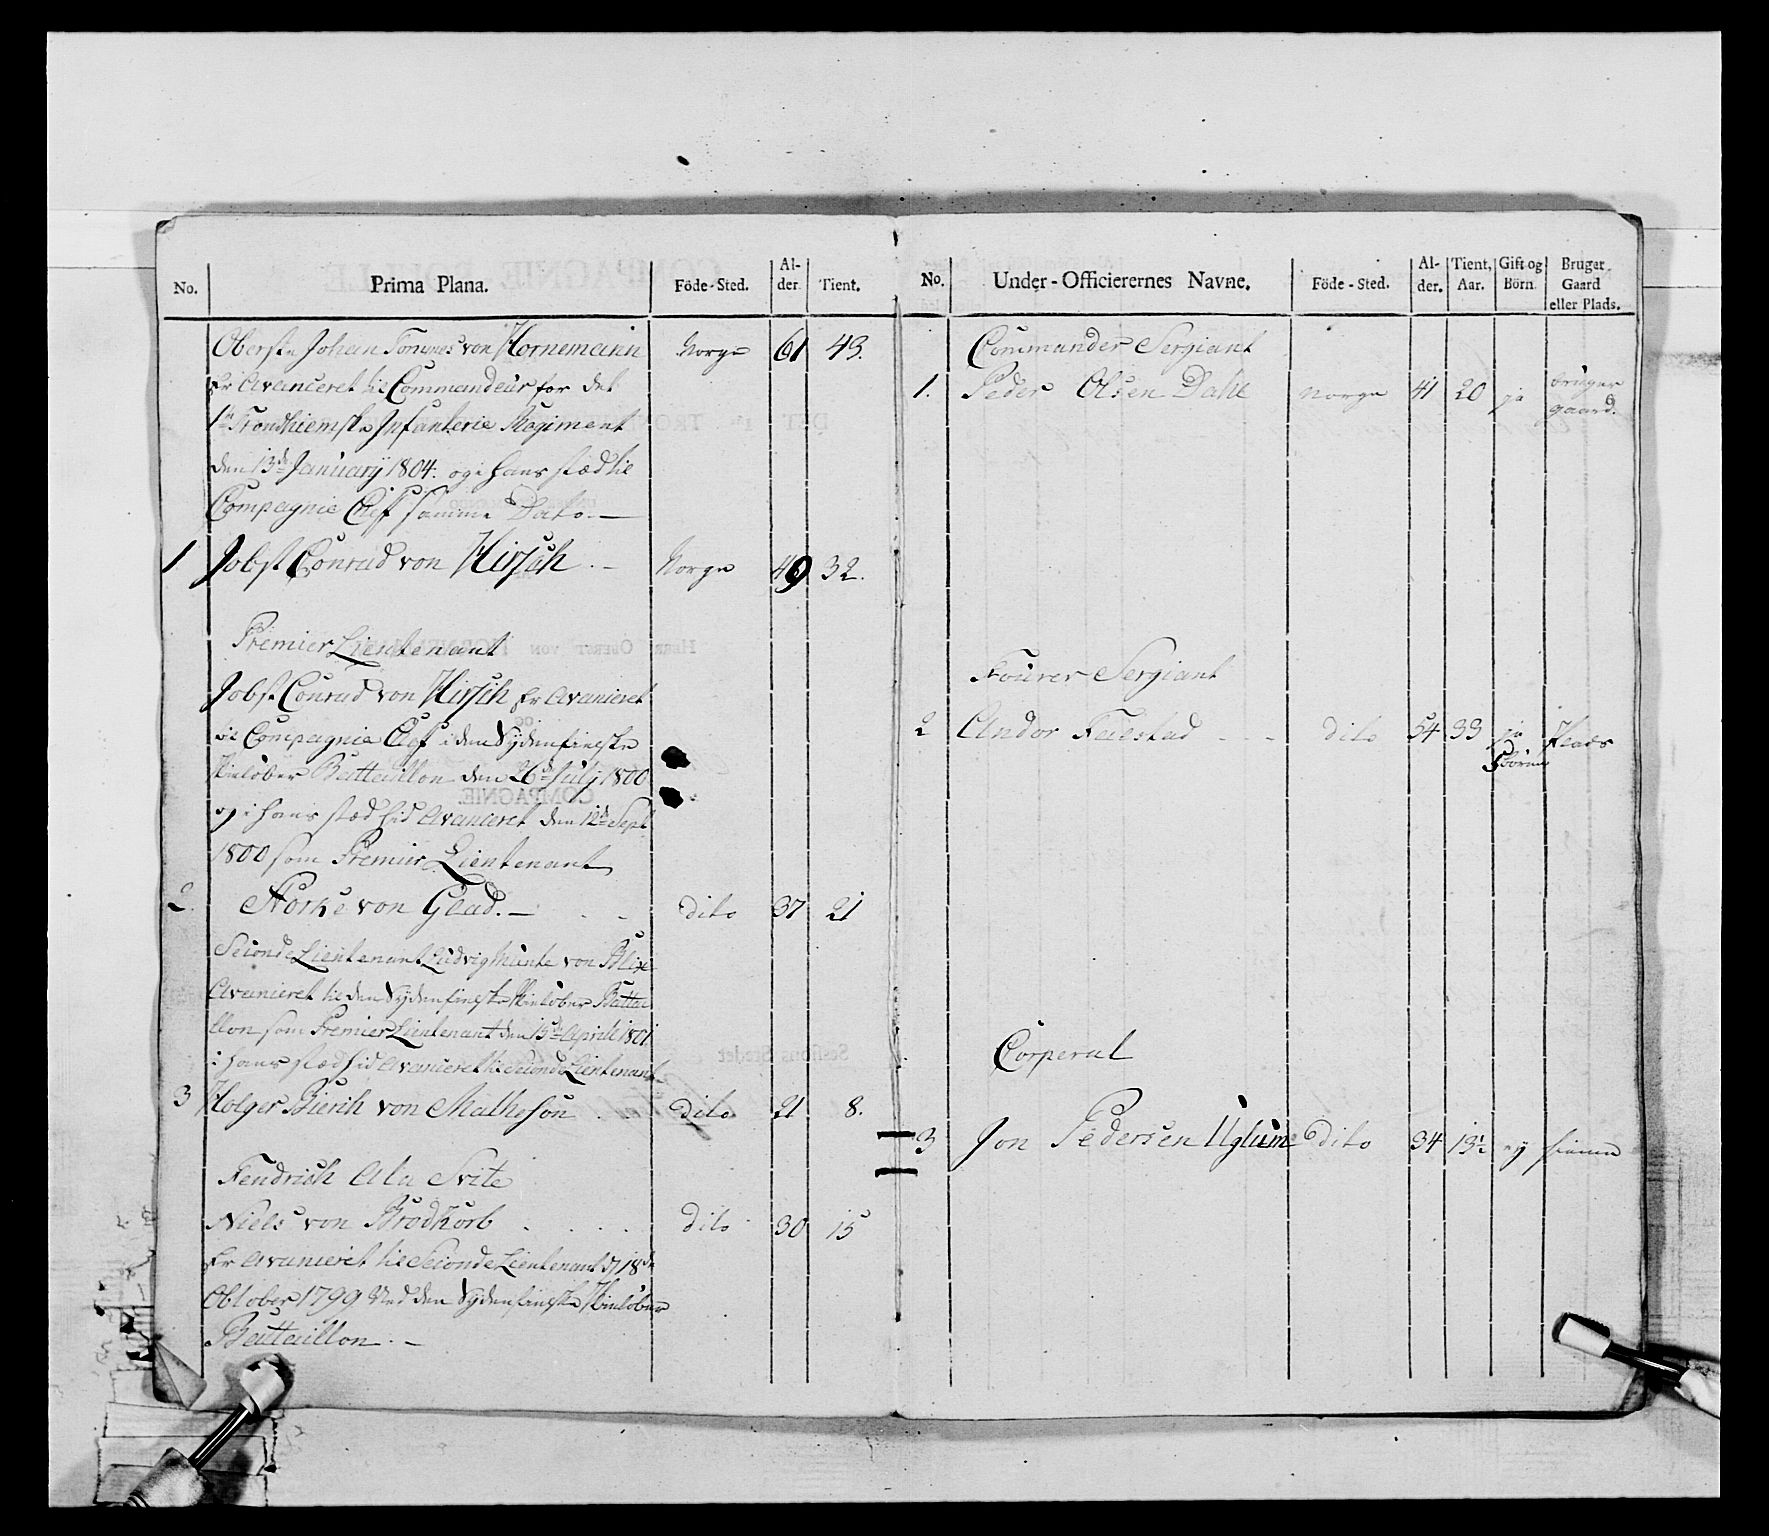 No. Prima Plana. Föde-Sted. Al-der. Tient.
Oberste Johan Tommes von Hornemann Norge 61 43.
Er Avanceret til Commandeür for det
1te Trondhiemske Infanterie Regiment
den 13de Januarÿ 1804. og i hans stæd til
Compagnie Chef samme Dato. —
1 Jobst Conrad von Hirsch. — Norge 49 32.
Premier Lieutenant
Jobst Conrad von Hirsch Er Avanceret
til Compagnie Chef i den Sydenfieldske
Skielöber Battaillon den 26de Julÿ 1800
og i hans stæd hid Avanceret den 12te Sept
1800 som Premier Lieutenant
2. Störke von Glad. — dito 37 21
Seconde Lieutenant Ludvig Munte von Blix
Avanceret til den Sydenfieldske Skielöber Battai
llon som Premier Lieutenant den 15de Aprill 1801.
i hans stæd hid Avanceret til Seconde Lieutenant
3 Holger Bierih von Matheson dito 21 8.
Fendrich Ala Svite
Niels von Brodkorb dito 30 15
Er Avanceret til Seconde Lieutenant d 18de
October 1799 Ved den Sydenfieldske Skielöber
Battaillon. —
No. Under-Officierernes Navne. Föde-Sted. Al-der. Tient, Aar. Gift og Börn. Bruger Gaard eller Plads.
Commander Sergiant
1. Peder Olsen Dahl Norge 41 20 ja bruger
gaard.
Fourer Sergiant
2 Andor Faестad dito 54 33 ja Plads
5 börn
Corperal
3 Jon Pedersen Uglum dito 34 13½ eÿ